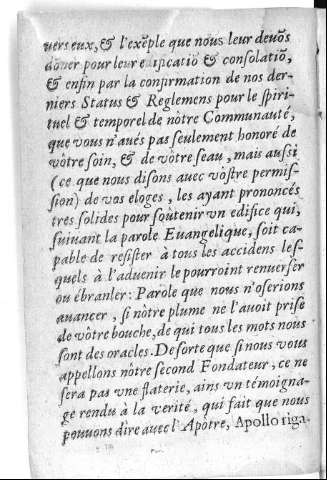 vers eux, & l'exẽple que nous leur devõs
dõner pour leur edificatiõ & consolatiõ,
& enfin par la confirmation de nos der-
niers Status & Reglemens pour le spiri-
tuel & temporel de nôtre Communauté,
que vous n'aués pas seulement honoré de
vôtre soin, & de vôtre seau, mais aussi
(ce que nous disons auec vôstre permis-
sion) de vos eloges, les ayant prononcés
tres solides pour soûtenir vn edifice qui,
suiuant la parole Euangelique, soit ca-
pable de resister à tous les accidens les-
quels à l'aduenir le pourroint renuerser
ou ébranler: Parole que nous n'oserions
auancer, si nôtre plume ne l'auoit prise
de vôtre bouche, de qui tous les mots nous
sont des oracles. De sorte que si nous vous
appellons nôtre second Fondateur, ce ne
sera pas vne flaterie, ains vn témoigna-
ge rendu à la verité, qui fait que nous
pouuons dire auec l'Apôtre, Apollo riga.